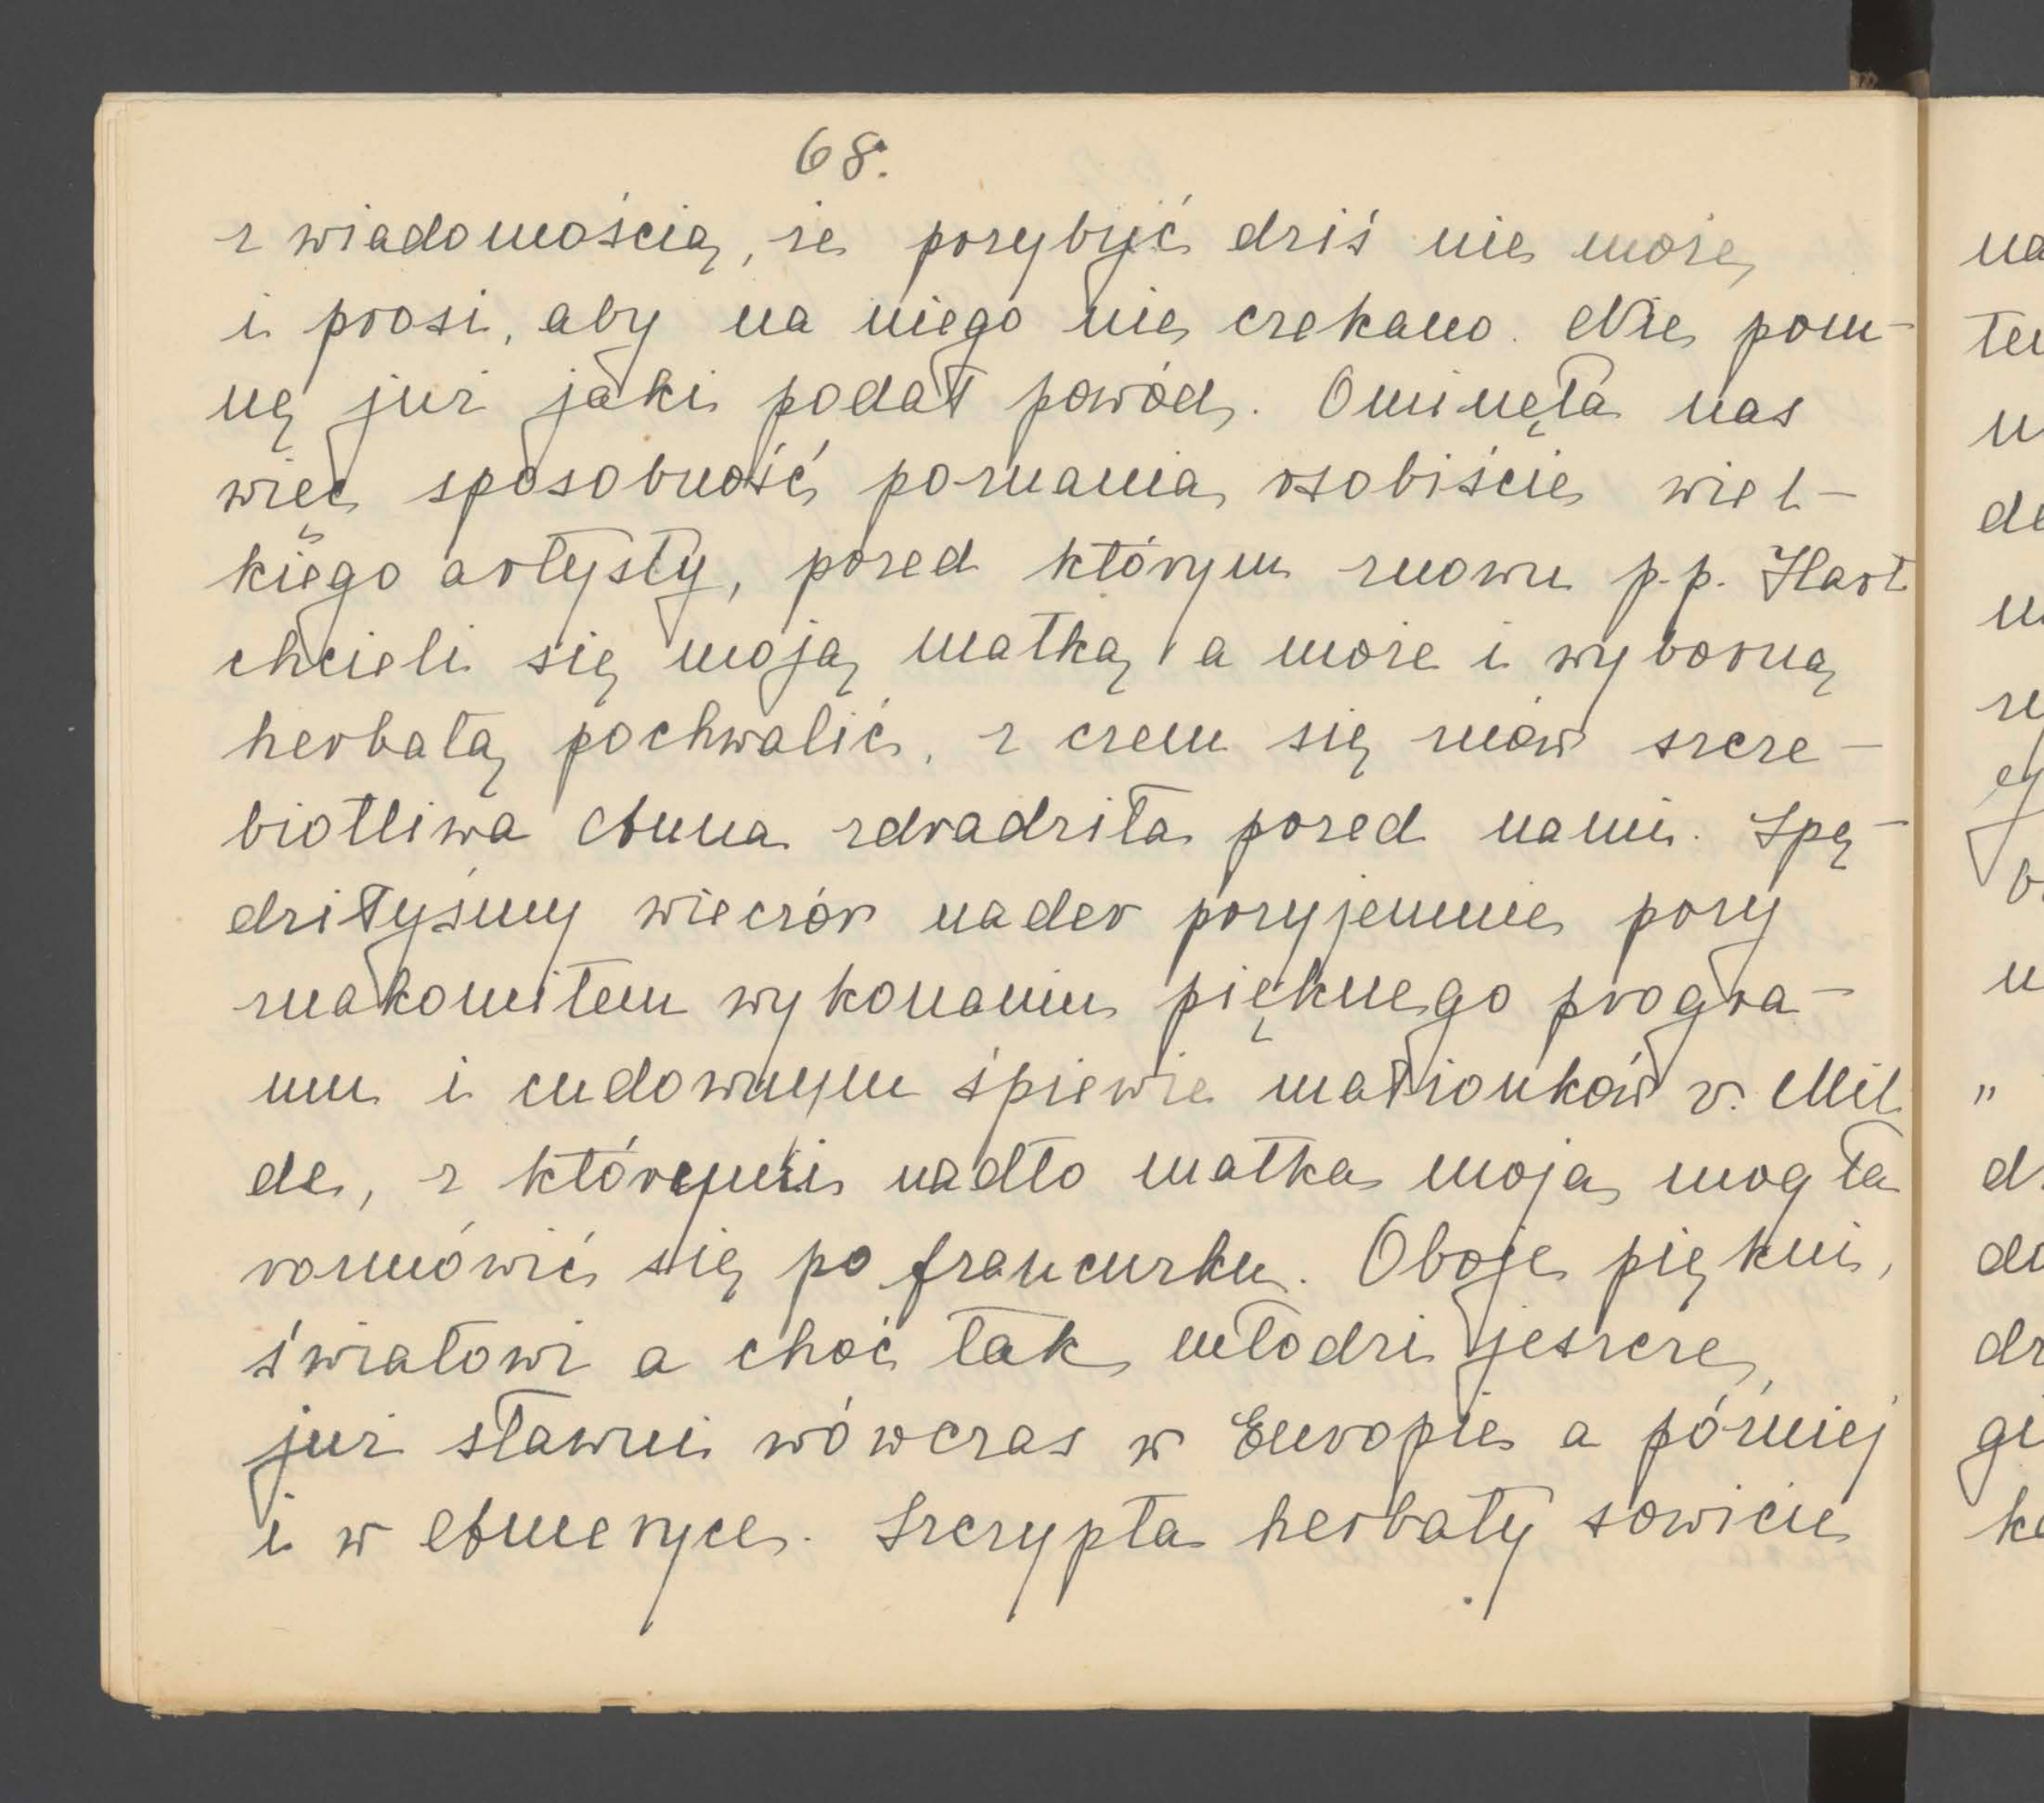 68.
z wiadomością, że przybyć dziś nie może,
i prosi, aby na niego nie czekano. Nie pom-
nę już jaki podał powód. Ominęła nas
więc sposobność poznania osobiście wiel-
kiego artysty, przed którym znowu p.p. Hart
chcieli się moją matką, a może i wyborną
herbatą pochwalić, z czem się znów szcze-
biotliwa Anna zdradziła przed nami. Spę-
dziłyśmy wieczór nader przyjemnie przy
znakomitem wykonaniu pięknego progra-
mu i cudownym śpiewie małżonków v. Mil
de, z którymi nadto matka moja mogła
rozmówić się po francuzku. Oboje piękni,
światowi a choć tak młodzi jeszcze,
już sławni wówczas w Europie a później
i w Ameryce. Szczypta herbaty sowicie
na